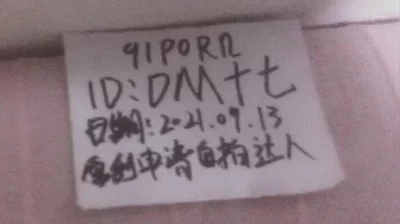 91PORN
ID:DM十七
日期:2021.09.13
原创申请自拍达人